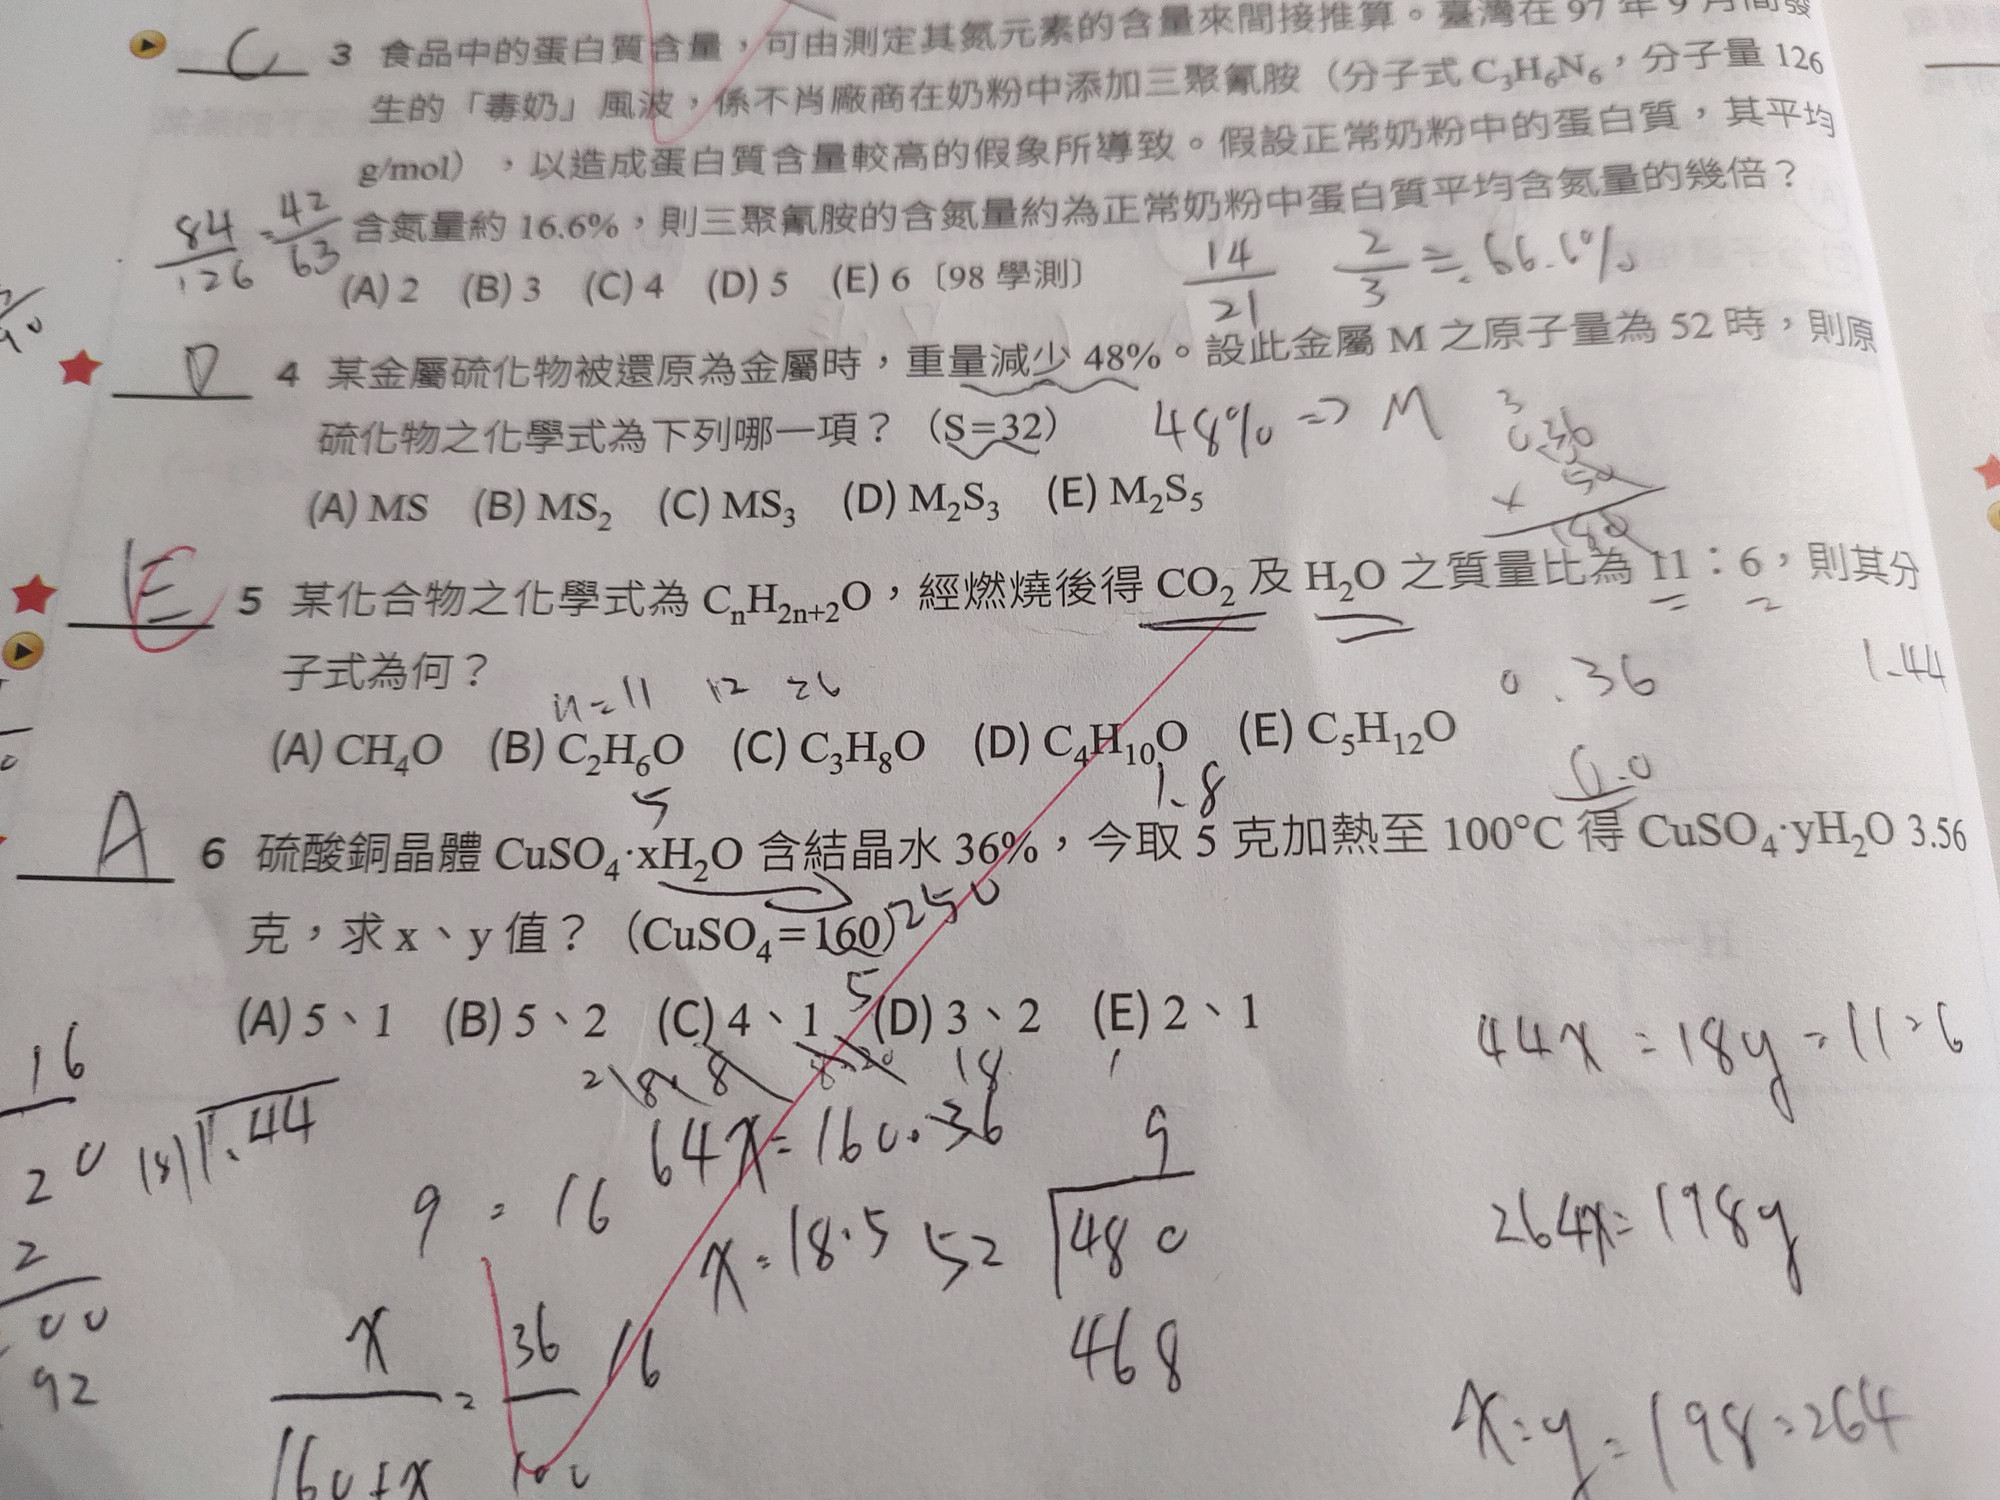 C 3 食品中的蛋白質含量，可由測定其氮元素的含量來間接推算。臺灣在 97 年 9 月間發
生的「毒奶」風波，係不肖廠商在奶粉中添加三聚氰胺（分子式 C₃H₆N₆，分子量 126
g/mol），以造成蛋白質含量較高的假象所導致。假設正常奶粉中的蛋白質，其平均
含氮量約 16.6%，則三聚氰胺的含氮量約為正常奶粉中蛋白質平均含氮量的幾倍？
84/126 = 42/63
14/21 2/3 ≒ 66.6%
(A) 2 (B) 3 (C) 4 (D) 5 (E) 6〔98 學測〕
D 4 某金屬硫化物被還原為金屬時，重量減少 48%。設此金屬 M 之原子量為 52 時，則原
硫化物之化學式為下列哪一項？（S=32）
48% => M
(A) MS (B) MS₂ (C) MS₃ (D) M₂S₃ (E) M₂S₅
E 5 某化合物之化學式為 CₙH₂ₙ₊₂O，經燃燒後得 CO₂ 及 H₂O 之質量比為 11：6，則其分
子式為何？
n=11 12 26
0.36
1.44
(A) CH₄O (B) C₂H₆O (C) C₃H₈O (D) C₄H₁₀O (E) C₅H₁₂O
5
1.8
A 6 硫酸銅晶體 CuSO₄·xH₂O 含結晶水 36%，今取 5 克加熱至 100°C 得 CuSO₄·yH₂O 3.56
克，求 x、y 值？（CuSO₄=160）
250
(A) 5、1 (B) 5、2 (C) 4、1 (D) 3、2 (E) 2、1
5
18
44x : 18y = 11:6
16
20
18 1.44
64x = 160.36
9
9 : 16
x = 18.5
52 480
468
264x = 198y
2
00
92
x/160+x = 36/100
16
x:y = 198:264